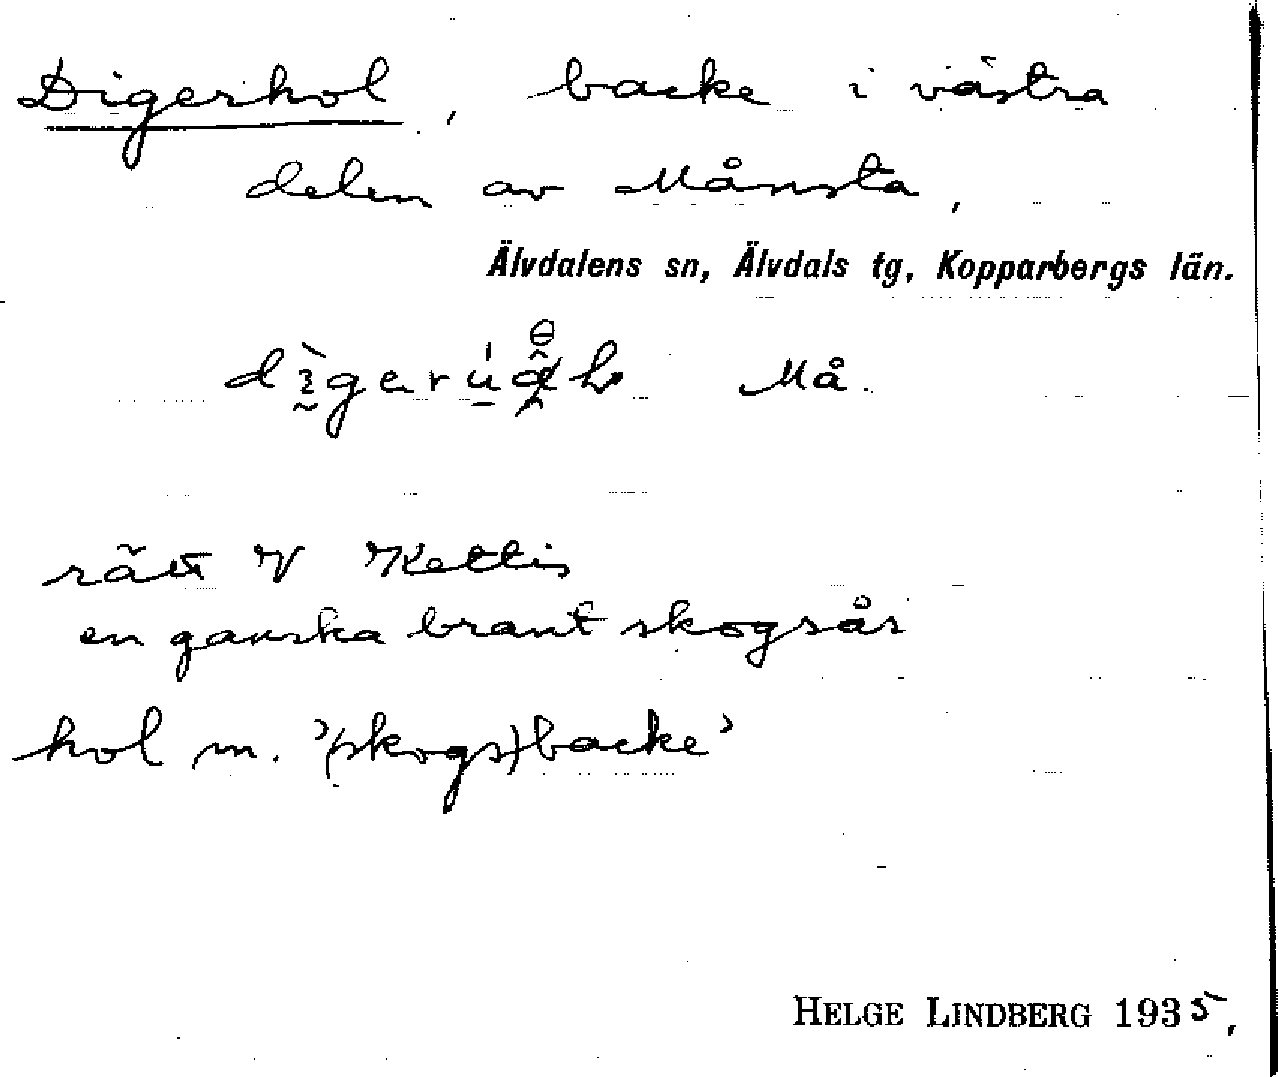 Digerhol, backe i västra
delen av Månsta,
Älvdalens sn, Älvdals tg, Kopparbergs län.
Må.
rätt V Kettis
en ganska brant skogsås
hol m. '(skogs)backe'
HELGE LINDBERG 1935.